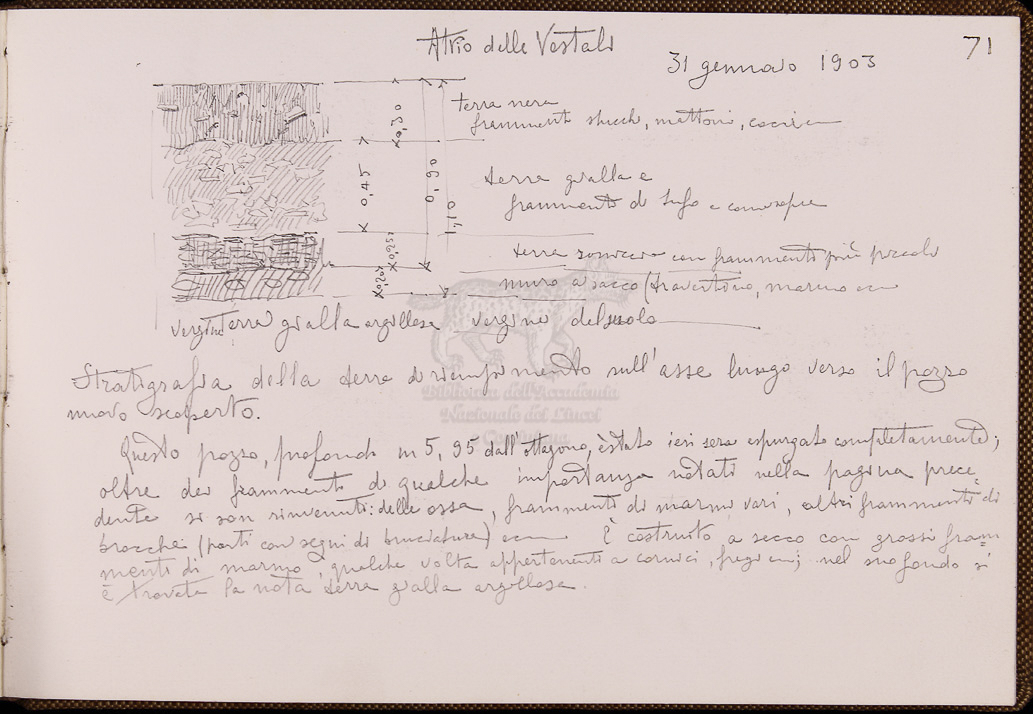 Atrio delle Vestali
71
31 gennaio 1903
terra nera
frammenti stucchi, mattoni, cocci
0,30
0,45
0,90
1,10
0,25
0,20
terra gialla e
frammenti di tufo e
terra con frammenti più piccoli
muro a sacco (travertino, marmo ecc
vergine terra gialla argillosa vergine del suolo
Stratigrafia della terra di riempimento sull'asse lungo verso il pozzo
nuovo scoperto.
Questo pozzo, profondo m 5,95 dall'ottagono, è stato ieri sera espurgato completamente;
oltre dei frammenti di qualche importanza notati nella pagina prece
dente si son rinvenuti: delle ossa, frammenti di marmi vari, altri frammenti di
brocche (parti con segni di bruciature) ecc È costruito a secco con grossi fram=
menti di marmo qualche volta appartenenti a cornici, fregi ecc; nel suo fondo si
è trovata la nota terra gialla argillosa.
Biblioteca dell'Accademia
Nazionale dei Lincei
e Corsiniana